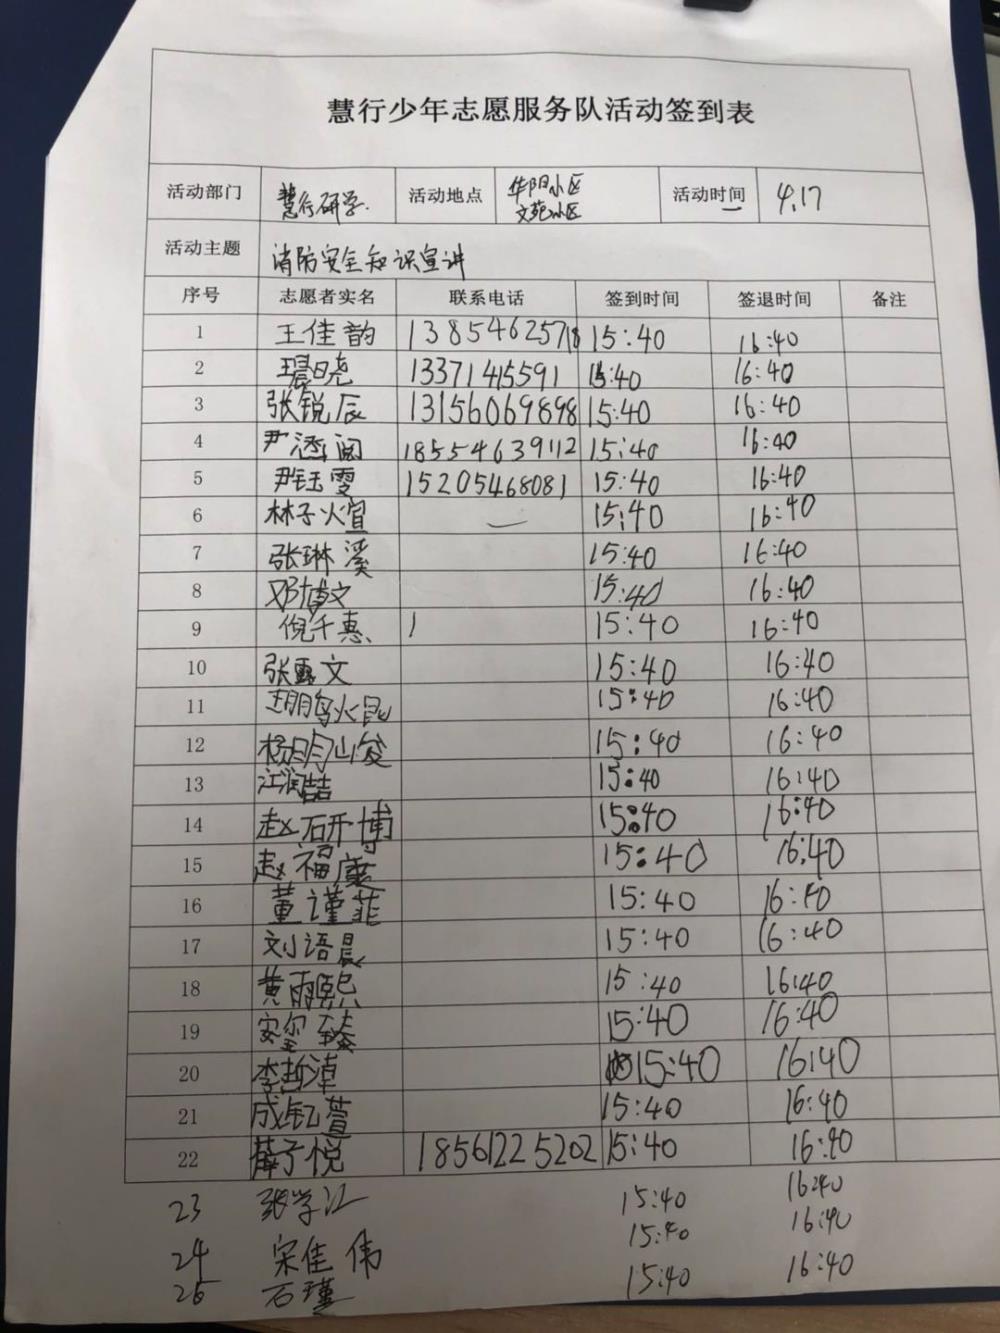 慧行少年志愿服务队活动签到表
活动部门 慧行研学. 活动地点 华阳小区 文苑小区 活动时间 4.17
活动主题 消防安全知识宣讲
序号 志愿者实名 联系电话 签到时间 签退时间 备注
1 王佳韵 13854625718 15:40 16:40
2 晨晓 13371415591 15:40 16:40
3 张锐辰 13156069898 15:40 16:40
4 尹涵阅 18554639112 15:40 16:40
5 尹钰雯 15205468081 15:40 16:40
6 林子煊 15:40 16:40
7 张琳溪 15:40 16:40
8 邓博文 15:40 16:40
9 倪千惠 1 15:40 16:40
10 张露文 15:40 16:40
11 15:40 16:40
12 杨明峻 15:40 16:40
13 江润喆 15:40 16:40
14 赵研博 15:40 16:40
15 赵福康 15:40 16:40
16 董谨菲 15:40 16:40
17 刘语晨 15:40 16:40
18 黄雨熙 15:40 16:40
19 安玺臻 15:40 16:40
20 李哲淖 15:40 16:40
21 成钇萱 15:40 16:40
22 薛子悦 18561225202 15:40 16:40
23 张学江 15:40 16:40
24 宋佳伟 15:40 16:40
25 石瑾 15:40 16:40